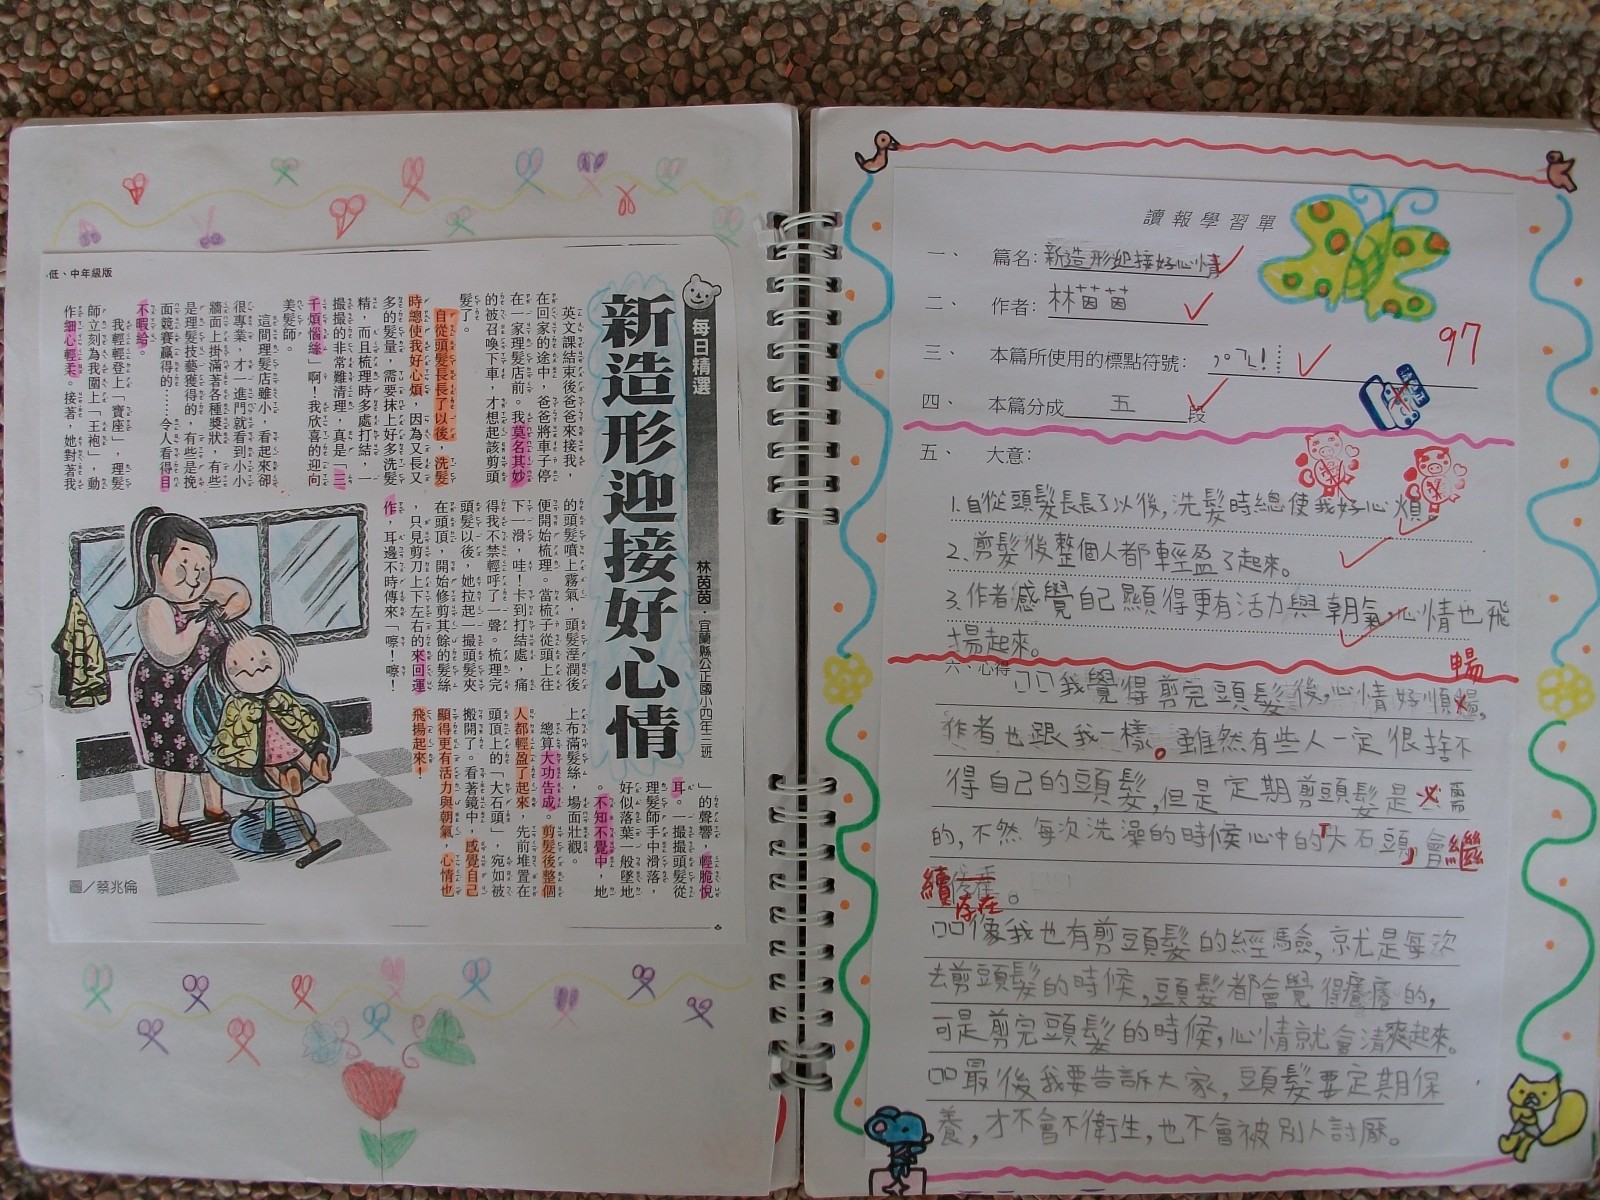 低、中年級版
每日精選
新造形迎接好心情
林茵茵．宜蘭縣公正國小四年三班
英文課結束後爸爸來接我，
在回家的途中，爸爸將車子停
在一家理髮店前。我莫名其妙
的被召喚下車，才想起該剪頭
髮了。
自從頭髮長長了以後，洗髮
時總使我好心煩，因為又長又
多的髮量，需要抹上好多洗髮
精，而且梳理時多處打結，一
撮撮的非常難清理，真是「三
千煩惱絲」啊！我欣喜的迎向
美髮師。
這間理髮店雖小，看起來卻
很專業，才一進門就看到小小
牆面上掛滿著各種獎狀，有些
是理髮技藝獲得的，有些是挽
面競賽贏得的……令人看得目
不暇給。
我輕輕登上「寶座」，理髮
師立刻為我圍上「王袍」，動
作細心輕柔。接著，她對著我
的頭髮噴上霧氣，頭髮溼潤後
便開始梳理。當梳子從頭上往
下一滑，哇！卡到打結處，痛
得我不禁輕呼了一聲。梳理完
頭髮以後，她拉起一撮頭髮夾
在頭頂，開始修剪其餘的髮絲
，只見剪刀上下左右的來回運
作，耳邊不時傳來「嚓！嚓！
」的聲響，輕脆悅
耳。一撮撮頭髮從
理髮師手中滑落，
好似落葉一般墜地
。不知不覺中，地
上布滿髮絲，場面壯觀。
總算大功告成。剪髮後整個
人都輕盈了起來，先前堆置在
頭頂上的「大石頭」，宛如被
搬開了。看著鏡中，感覺自己
顯得更有活力與朝氣，心情也
飛揚起來！
圖／蔡兆倫
讀報學習單
一、 篇名：新造形迎接好心情
二、 作者：林茵茵
三、 本篇所使用的標點符號：，。「」！……
97
四、 本篇分成 五 段
五、 大意：
1.自從頭髮長長了以後，洗髮時總使我好心煩。
2.剪髮後整個人都輕盈了起來。
3.作者感覺自己顯得更有活力與朝氣，心情也飛
揚起來。
暢
六、心得 我覺得剪完頭髮後，心情好順，
作者也跟我一樣。雖然有些人一定很捨不
得自己的頭髮，但是定期剪頭髮是需
的，不然每次洗澡的時候心中的「大石頭」會繼
續存在。
像我也有剪頭髮的經驗，就是每次
去剪頭髮的時候，頭髮都會覺得癢癢的，
可是剪完頭髮的時候，心情就會清爽起來。
最後我要告訴大家，頭髮要定期保
養，才不會不衛生，也不會被別人討厭。